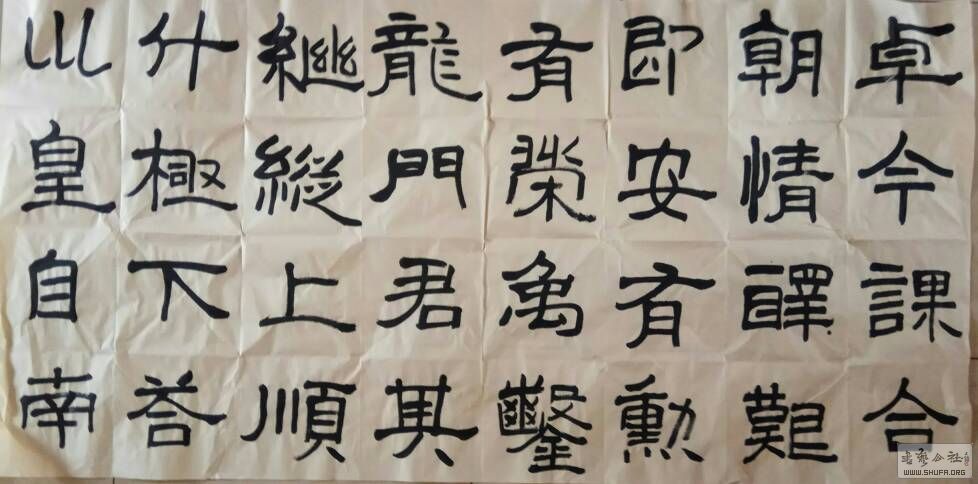 卓今課合
朝情醳艱
即安有勳
有榮禹鑿
龍門君其
繼縱上順
斗極下答
巛皇自南
書藝公社
WWW.SHUFA.ORG